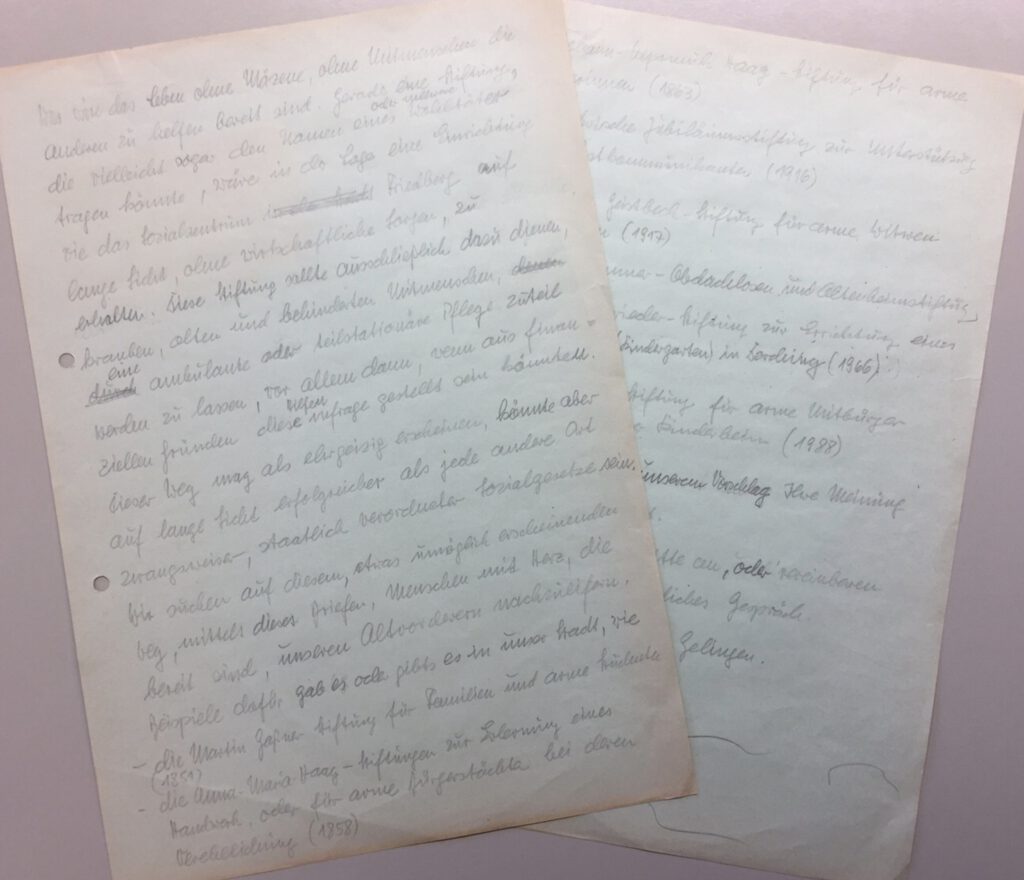 Was wär das Leben ohne Mäzene, ohne Mitmenschen die
anderen zu helfen bereit sind. Gerade eine Stiftung,
die vielleicht sogar den Namen eines oder mehrerer Wohltäter
tragen könnte, wäre in der Lage eine Einrichtung
wie das Sozialzentrum in der Stadt Friedberg auf
lange Sicht, ohne wirtschaftliche Sorgen, zu
erhalten. Diese Stiftung sollte ausschließlich dazu dienen,
kranken, alten und behinderten Mitmenschen, denen
durch eine ambulante oder teilstationäre Pflege zuteil
werden zu lassen, vor allem dann, wenn aus finan-
ziellen Gründen diese infrage gestellt sein könnten.
Dieser Weg mag als ehrgeizig erscheinen, könnte aber
auf lange Sicht erfolgreicher als jede andere Art
zwangsweiser, staatlich verordneter Sozialgesetze sein.
Wir suchen auf diesem, etwas unmöglich erscheinenden
Weg, mittels dieses Briefes, Menschen mit Herz, die
bereit sind, unseren Altvorderern nachzueifern.
Beispiele dafür gab es oder gibts es in unser Stadt, wie
- die Martin Stiftung für Familien und arme Studenten
(1851)
- die Anna-Maria Haag-Stiftungen zur Erlernung eines
Handwerk, oder für arme Bürgerstöchter bei deren
Verehelichung (1858)
Haag-Stiftung für arme
(1863)
Jubiläumsstiftung zur Unterstützung
(1916)
Stiftung für arme Witwen
(1917)
Obdachlosen und Altenheimstiftung,
rieder-Stiftung zur Errichtung eines
Kindergarten) in Derching (1966)
Stiftung für arme Mitbürger
Kinderheim (1988)
unserem Vorschlag Ihre Meinung
t.
tte an, oder vereinbaren
liches Gespräch.
Gelingen.